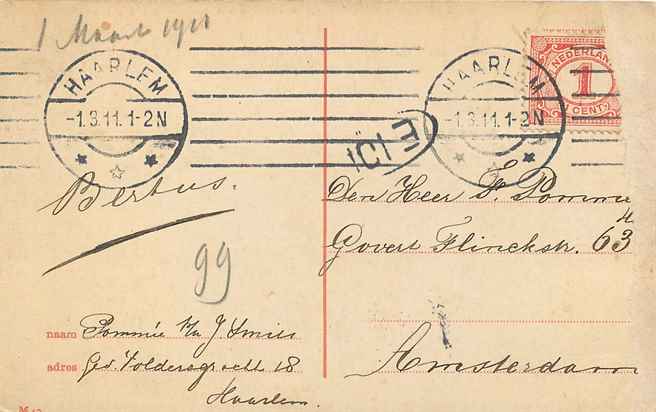 1 Maart 1911
HAARLEM
-1.3.11.1-2N
HAARLEM
-1.3.11.1-2N
NEDERLAND
1
CENT
Bertus.
99
Den Heer
Govert Flinckstr. 63
4
Amsterdam
naam Pommée J Smies
adres Ged. Voldersgracht 18
Haarlem.